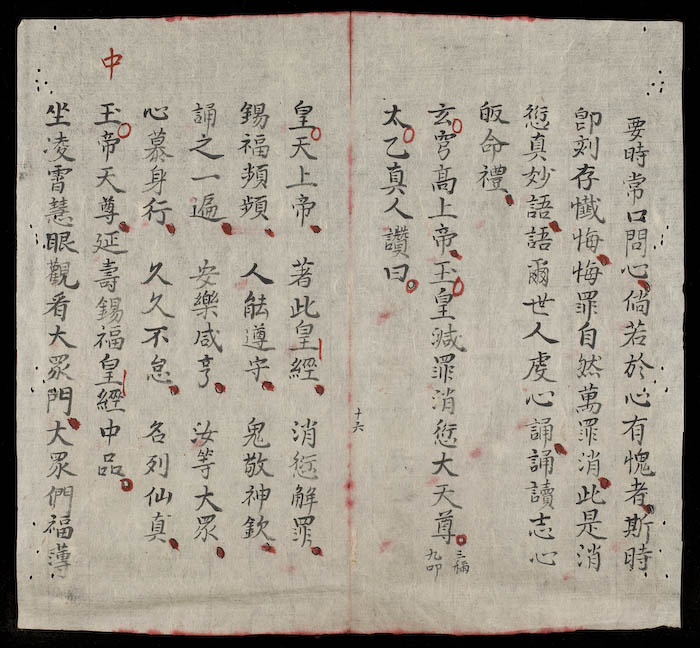 要時常口問心倘若於心有愧者斯時
即刻存懺悔悔罪自然萬罪消此是消
愆真妙語語爾世人虔心誦誦讀志心
皈命禮
玄穹高上帝玉皇減罪消愆大天尊 三稱九叩
太乙真人讚曰
十六
皇天上帝 著此皇經 消愆解罪
錫福頻頻 人能遵守 鬼敬神欽
誦之一遍 安樂咸亨 汝等大眾
心慕身行 久久不怠 名列仙真
玉帝天尊延壽錫福皇經中品
坐凌霄慧眼觀看大眾門大眾們福薄
中